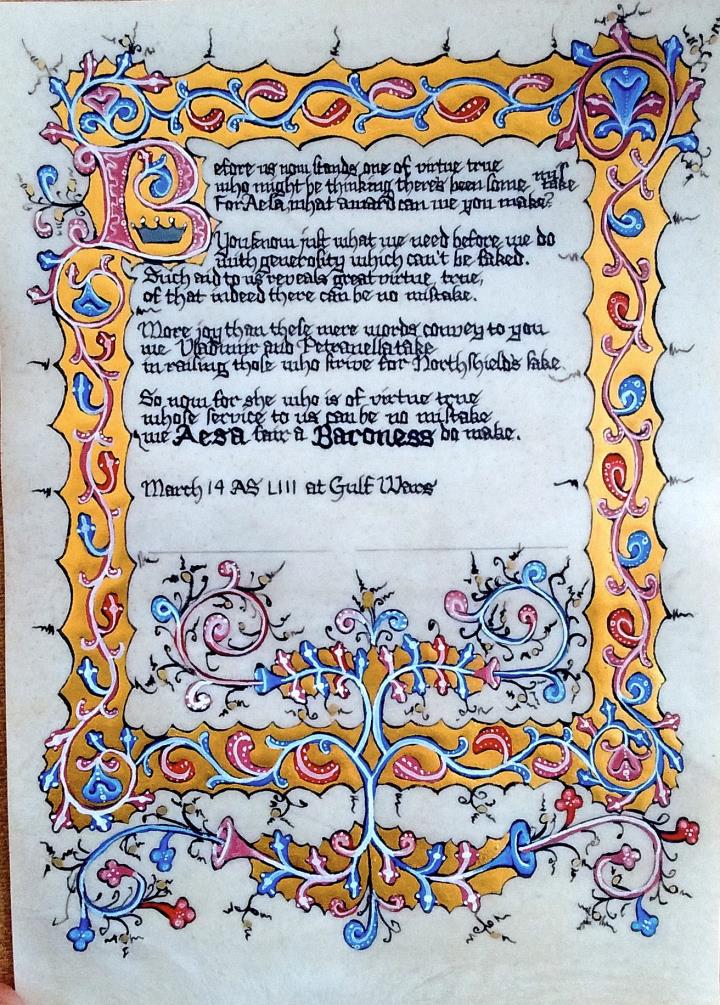 Before us now stands one of virtue true
who might be thinking there's been some mistake
For Aesa, what award can we you make?
You know just what we need before we do
with generosity which can't be faked.
Such aid to us reveals great virtue, true,
of that indeed there can be no mistake.
More joy than these mere words convey to you
we Vladimir and Petranella take
in railing those who strive for Northshield's sake.
So now for she who is of virtue true
whose service to us can be no mistake
we Aesa fair a Baroness do make.
March 14 AS LIII at Gulf Wars